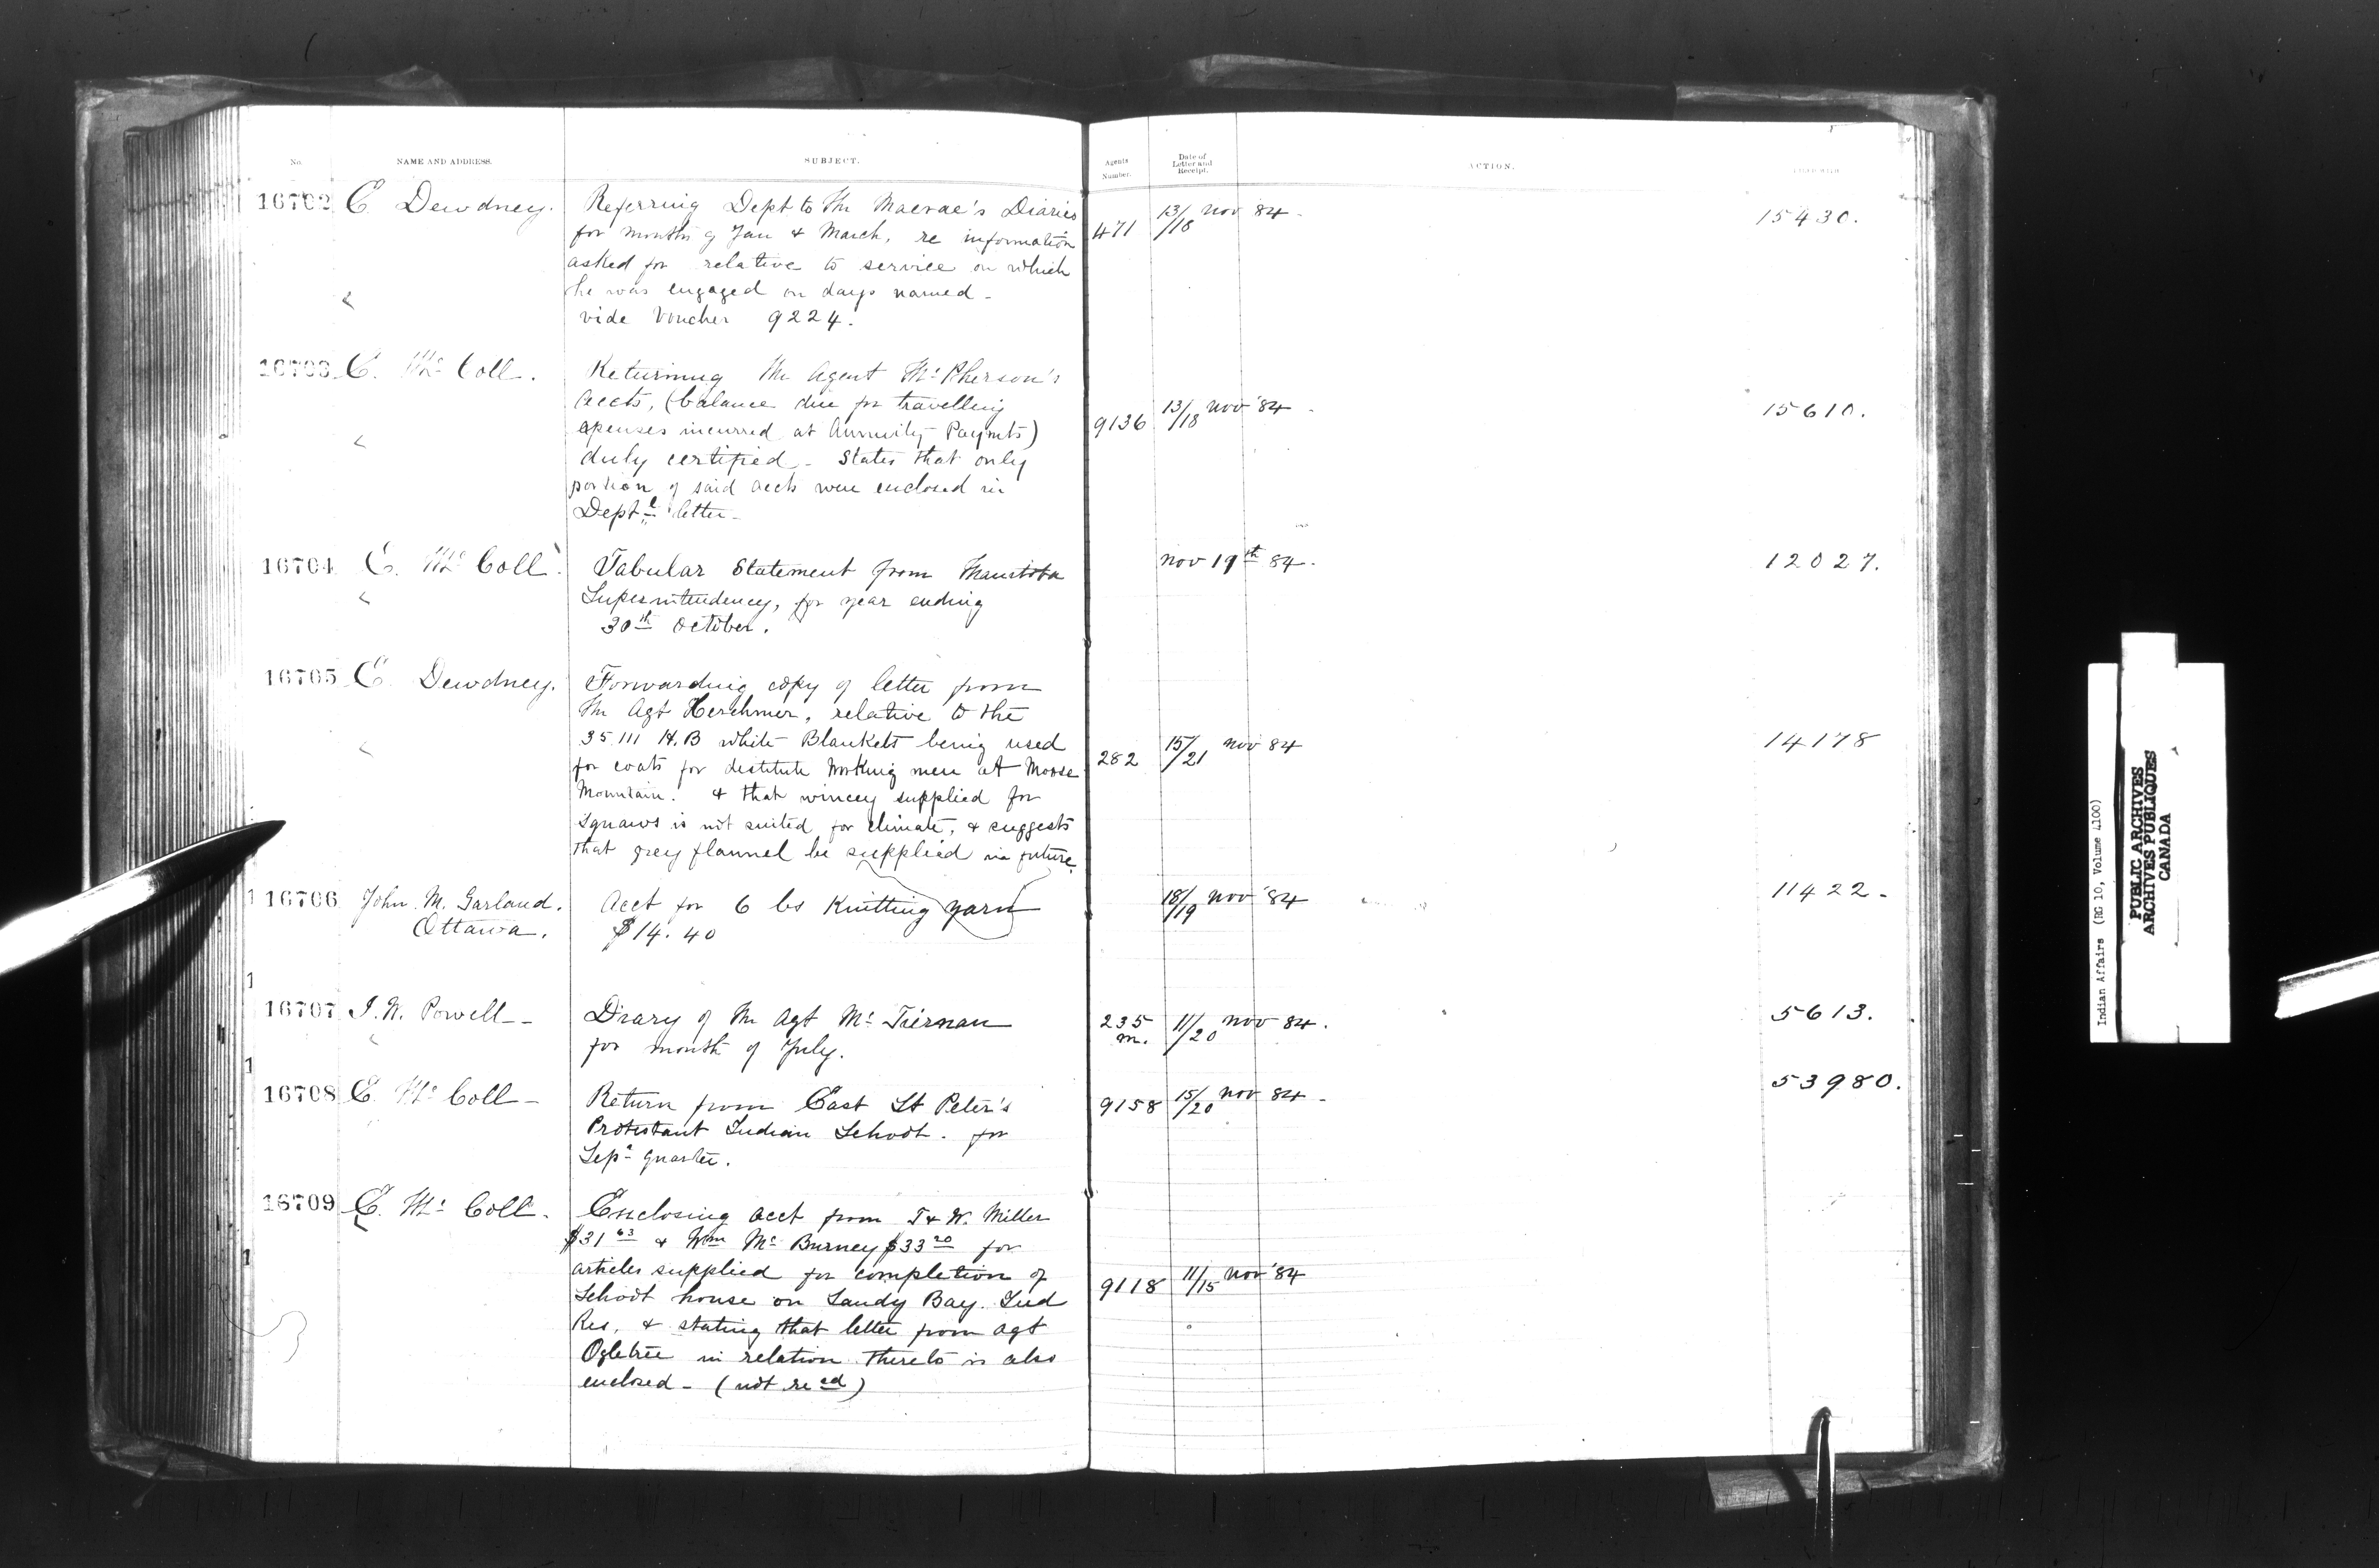 No. NAME AND ADDRESS. SUBJECT. Agents Number. Date of Letter and Receipt. ACTION.
16702 E Dewdney. Referring Dept to Mr Macrae's Diaries
for months of Jan & March, re information
asked for relative to service on which
he was engaged on days named -
vide Voucher 9224.
471 13/18 Nov 84 - 15430.
16703 E. Mc Coll. Returning Mr Agent McPherson's
accts, (balance due for travelling
expenses incurred at Annuity Paymts)
duly certified - States that only
portion of said accts were enclosed in
Deptl letter -
9136 13/18 Nov '84 - 15610.
16704 E. Mc Coll. Tabular Statement from Manitoba
Superintendency, for year ending
30th October.
Nov 19th 84. 12027.
16705 E Dewdney. Forwarding copy of letter from
Mr Agt Herchmer, relative to the
35 111 H.B white Blankets being used
for coats for destitute working men at Moose
Mountain. & that wincey supplied for
Squaws is not suited for climate, & suggests
that grey flannel be supplied in future.
282 15/21 Nov 84 14178
16706 John M. Garland. Acct for 6 lbs Knitting yarn
Ottawa. $14.40
18/19 Nov '84 11422 -
16707 I. W. Powell - Diary of Mr Agt McTiernan
for month of July.
235 m. 11/20 Nov 84. 5613.
16708 E Mc Coll - Return from East St Peter's
Protestant Indian School. for
Sepr quarter.
9158 15/20 Nov 84 - 53980.
16709 E. Mc Coll. Enclosing acct from T & W. Miller
$31 63 & Wm McBurney $33 20 for
articles supplied for completion of
School house on Sandy Bay Ind
Res, & stating that letter from agt
Ogletree in relation thereto is also
enclosed - (not recd)
9118 11/15 Nov '84
Indian Affairs (RG 10, Volume 4100)
PUBLIC ARCHIVES
ARCHIVES PUBLIQUES
CANADA